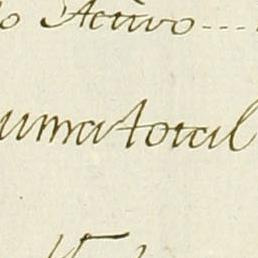 o Activo....
uma total